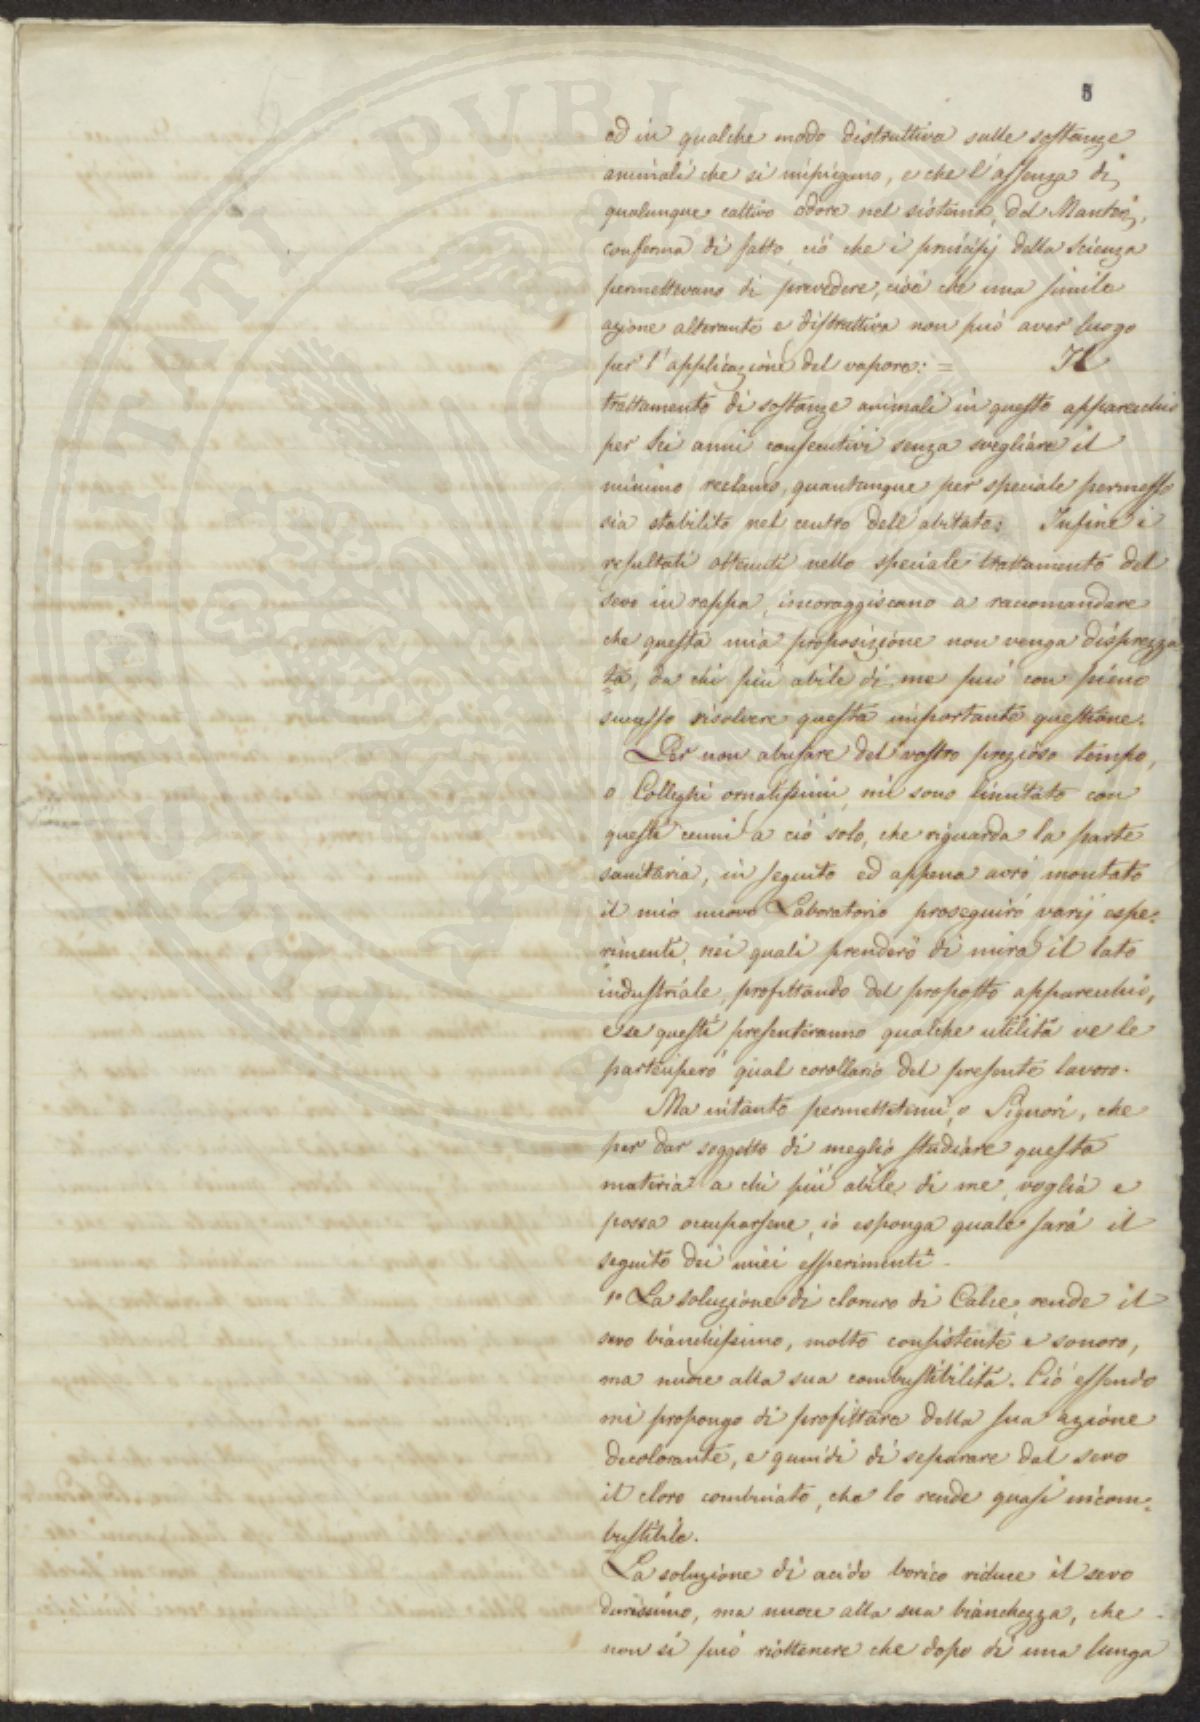 5
ed in qualche modo distruttiva sulle sostanze
animali che si impiegano, e che l'assenza di
qualunque cattivo odore nel sistema del Manteri,
conferma di fatto ciò che i principj della Scienza
permettevano di prevedere, cioè che una simile
azione alterante e distruttiva non può aver luogo
per l'applicazione del vapore: = Il
trattamento di sostanze animali in questo apparecchio
per sei anni consecutivi senza svegliare il
minimo reclamo, quantunque per speciale permesso
sia stabilito nel centro dell'abitato: Infine i
resultati ottenuti nello speciale trattamento del
sevo in rappa, incoraggiscono a raccomandare
che questa mia proposizione non venga disprezza
ta, da chi più abile di me può con pieno
successo risolvere questa importante questione.
Per non abusare del vostro prezioso tempo,
o Colleghi ornatissimi, mi sono limitato con
questi cenni a ciò solo, che riguarda la parte
sanitaria, in seguito ed appena avrò montato
il mio nuovo Laboratorio proseguirò varij espe:
rimenti, nei quali prenderò di mira il lato
industriale, profittando del proposto apparecchio,
e se questi presenteranno qualche utilità ve le
parteciperò qual corollario del presente lavoro.
Ma intanto permettetemi, o Signori, che
per dar soggetto di meglio studiare questa
materia a chi più abile di me, voglia e
possa occuparsene, io esponga quale sarà il
seguito dei miei esperimenti.
1º La soluzione di cloruro di Calce, rende il
sevo bianchissimo, molto consistente e sonoro,
ma nuoce alla sua combustibilità. Ciò essendo
mi propongo di profittare della sua azione
decolorante, e quindi di separare dal sevo
il cloro combinato, che lo rende quasi incom:
bustibile.
La soluzione di acido borico riduce il sevo
durissimo, ma nuoce alla sua bianchezza, che
non si può riottenere che dopo di una lunga